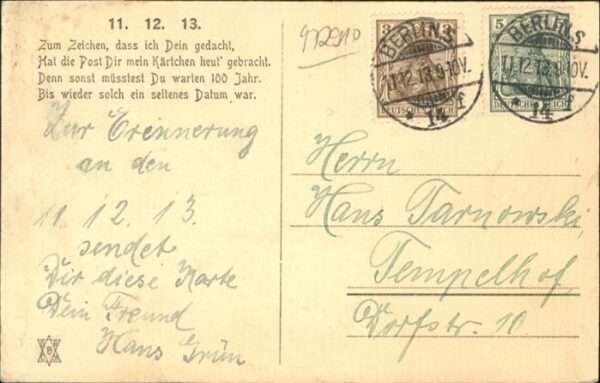 11. 12. 13.
Zum Zeichen, dass ich Dein gedacht,
Hat die Post Dir mein Kärtchen heut' gebracht.
Denn sonst müsstest Du warten 100 Jahr.
Bis wieder solch ein seltenes Datum war.
Zur Erinnerung
an den
11 12. 13.
sendet
Dir diese Karte
Dein Freund
Hans Grün
3 3
5
BERLIN S.
11.12.13.9-10V.
14
BERLIN S.
11.12.13.9-10V.
14
DEUTSCHES REICH
DEUTSCHES REICH
Herrn
Hans Tarnowski,
Tempelhof,
Dorfstr. 10